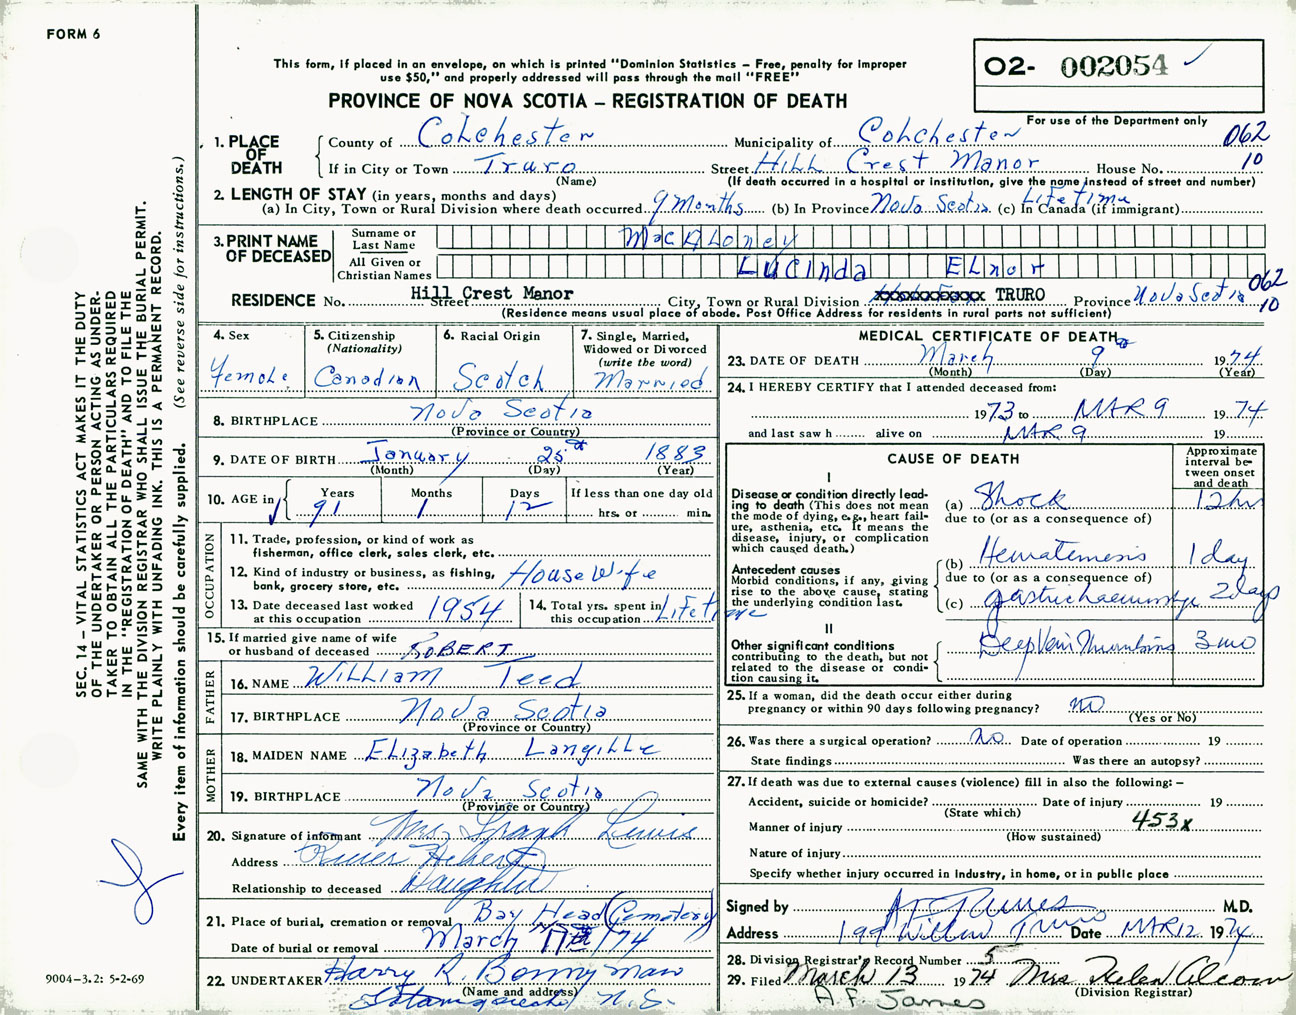 FORM 6
This form, if placed in an envelope, on which is printed "Dominion Statistics – Free, penalty for improper
use $50," and properly addressed will pass through the mail "FREE"
O2- 002054
PROVINCE OF NOVA SCOTIA – REGISTRATION OF DEATH
For use of the Department only
1. PLACE OF DEATH
County of Colchester Municipality of Colchester 062
If in City or Town Truro Street Hill Crest Manor House No. 10
(Name) (If death occurred in a hospital or institution, give the name instead of street and number)
2. LENGTH OF STAY (in years, months and days)
(a) In City, Town or Rural Division where death occurred 9 Months (b) In Province Nova Scotia (c) In Canada (if immigrant) Life Time
3. PRINT NAME OF DECEASED
Surname or Last Name MacAloney
All Given or Christian Names Lucinda Elnor
062
RESIDENCE No. Hill Crest Manor Street City, Town or Rural Division TRURO Province Nova Scotia 10
(Residence means usual place of abode. Post Office Address for residents in rural parts not sufficient)
4. Sex Female
5. Citizenship (Nationality) Canadian
6. Racial Origin Scotch
7. Single, Married, Widowed or Divorced (write the word) Married
8. BIRTHPLACE Nova Scotia
(Province or Country)
9. DATE OF BIRTH January 25th 1883
(Month) (Day) (Year)
10. AGE in Years 91 Months 1 Days 12 If less than one day old hrs. or min.
OCCUPATION
11. Trade, profession, or kind of work as
fisherman, office clerk, sales clerk, etc.
12. Kind of industry or business, as fishing,
bank, grocery store, etc. House Wife
13. Date deceased last worked
at this occupation 1954
14. Total yrs. spent in
this occupation Life time
15. If married give name of wife
or husband of deceased ROBERT
FATHER
16. NAME William Teed
17. BIRTHPLACE Nova Scotia
(Province or Country)
MOTHER
18. MAIDEN NAME Elizabeth Langille
19. BIRTHPLACE Nova Scotia
(Province or Country)
20. Signature of informant Mrs. Frank Lewis
Address River Hebert
Relationship to deceased Daughter
21. Place of burial, cremation or removal Bay Head (Cemetery)
Date of burial or removal March 11th /74
22. UNDERTAKER Harry R. Bonnyman
(Name and address)
Tatamagouche N.S.
MEDICAL CERTIFICATE OF DEATH
23. DATE OF DEATH March 9 1974
(Month) (Day) (Year)
24. I HEREBY CERTIFY that I attended deceased from:
1973 to MAR 9 1974
and last saw h alive on MAR 9 19
CAUSE OF DEATH
Approximate interval between onset and death
I
Disease or condition directly leading to death (This does not mean the mode of dying, e.g., heart failure, asthenia, etc. It means the disease, injury, or complication which caused death.)
(a) Shock 12 hrs
due to (or as a consequence of)
Antecedent causes
Morbid conditions, if any, giving rise to the above cause, stating the underlying condition last.
(b) Hematemesis 1 day
due to (or as a consequence of)
(c) gastric haemorrhage 2 days
II
Other significant conditions
contributing to the death, but not related to the disease or condition causing it.
Deep Vein Thrombosis 3 mo
25. If a woman, did the death occur either during
pregnancy or within 90 days following pregnancy? no
(Yes or No)
26. Was there a surgical operation? no Date of operation 19
State findings Was there an autopsy?
27. If death was due to external causes (violence) fill in also the following: –
Accident, suicide or homicide? Date of injury 19
(State which)
Manner of injury 453x
(How sustained)
Nature of injury
Specify whether injury occurred in industry, in home, or in public place
Signed by A F James M.D.
Address 199 Willow Truro Date MAR 12 1974
28. Division Registrar's Record Number 5
29. Filed March 13 1974 Mrs Helen Alcorn
(Division Registrar)
A. F. James
SEC. 14 – VITAL STATISTICS ACT MAKES IT THE DUTY
OF THE UNDERTAKER OR PERSON ACTING AS UNDER-
TAKER TO OBTAIN ALL THE PARTICULARS REQUIRED
IN THE "REGISTRATION OF DEATH" AND TO FILE THE
SAME WITH THE DIVISION REGISTRAR WHO SHALL ISSUE THE BURIAL PERMIT.
WRITE PLAINLY WITH UNFADING INK. THIS IS A PERMANENT RECORD.
Every item of information should be carefully supplied. (See reverse side for instructions.)
9004-3.2: 5-2-69